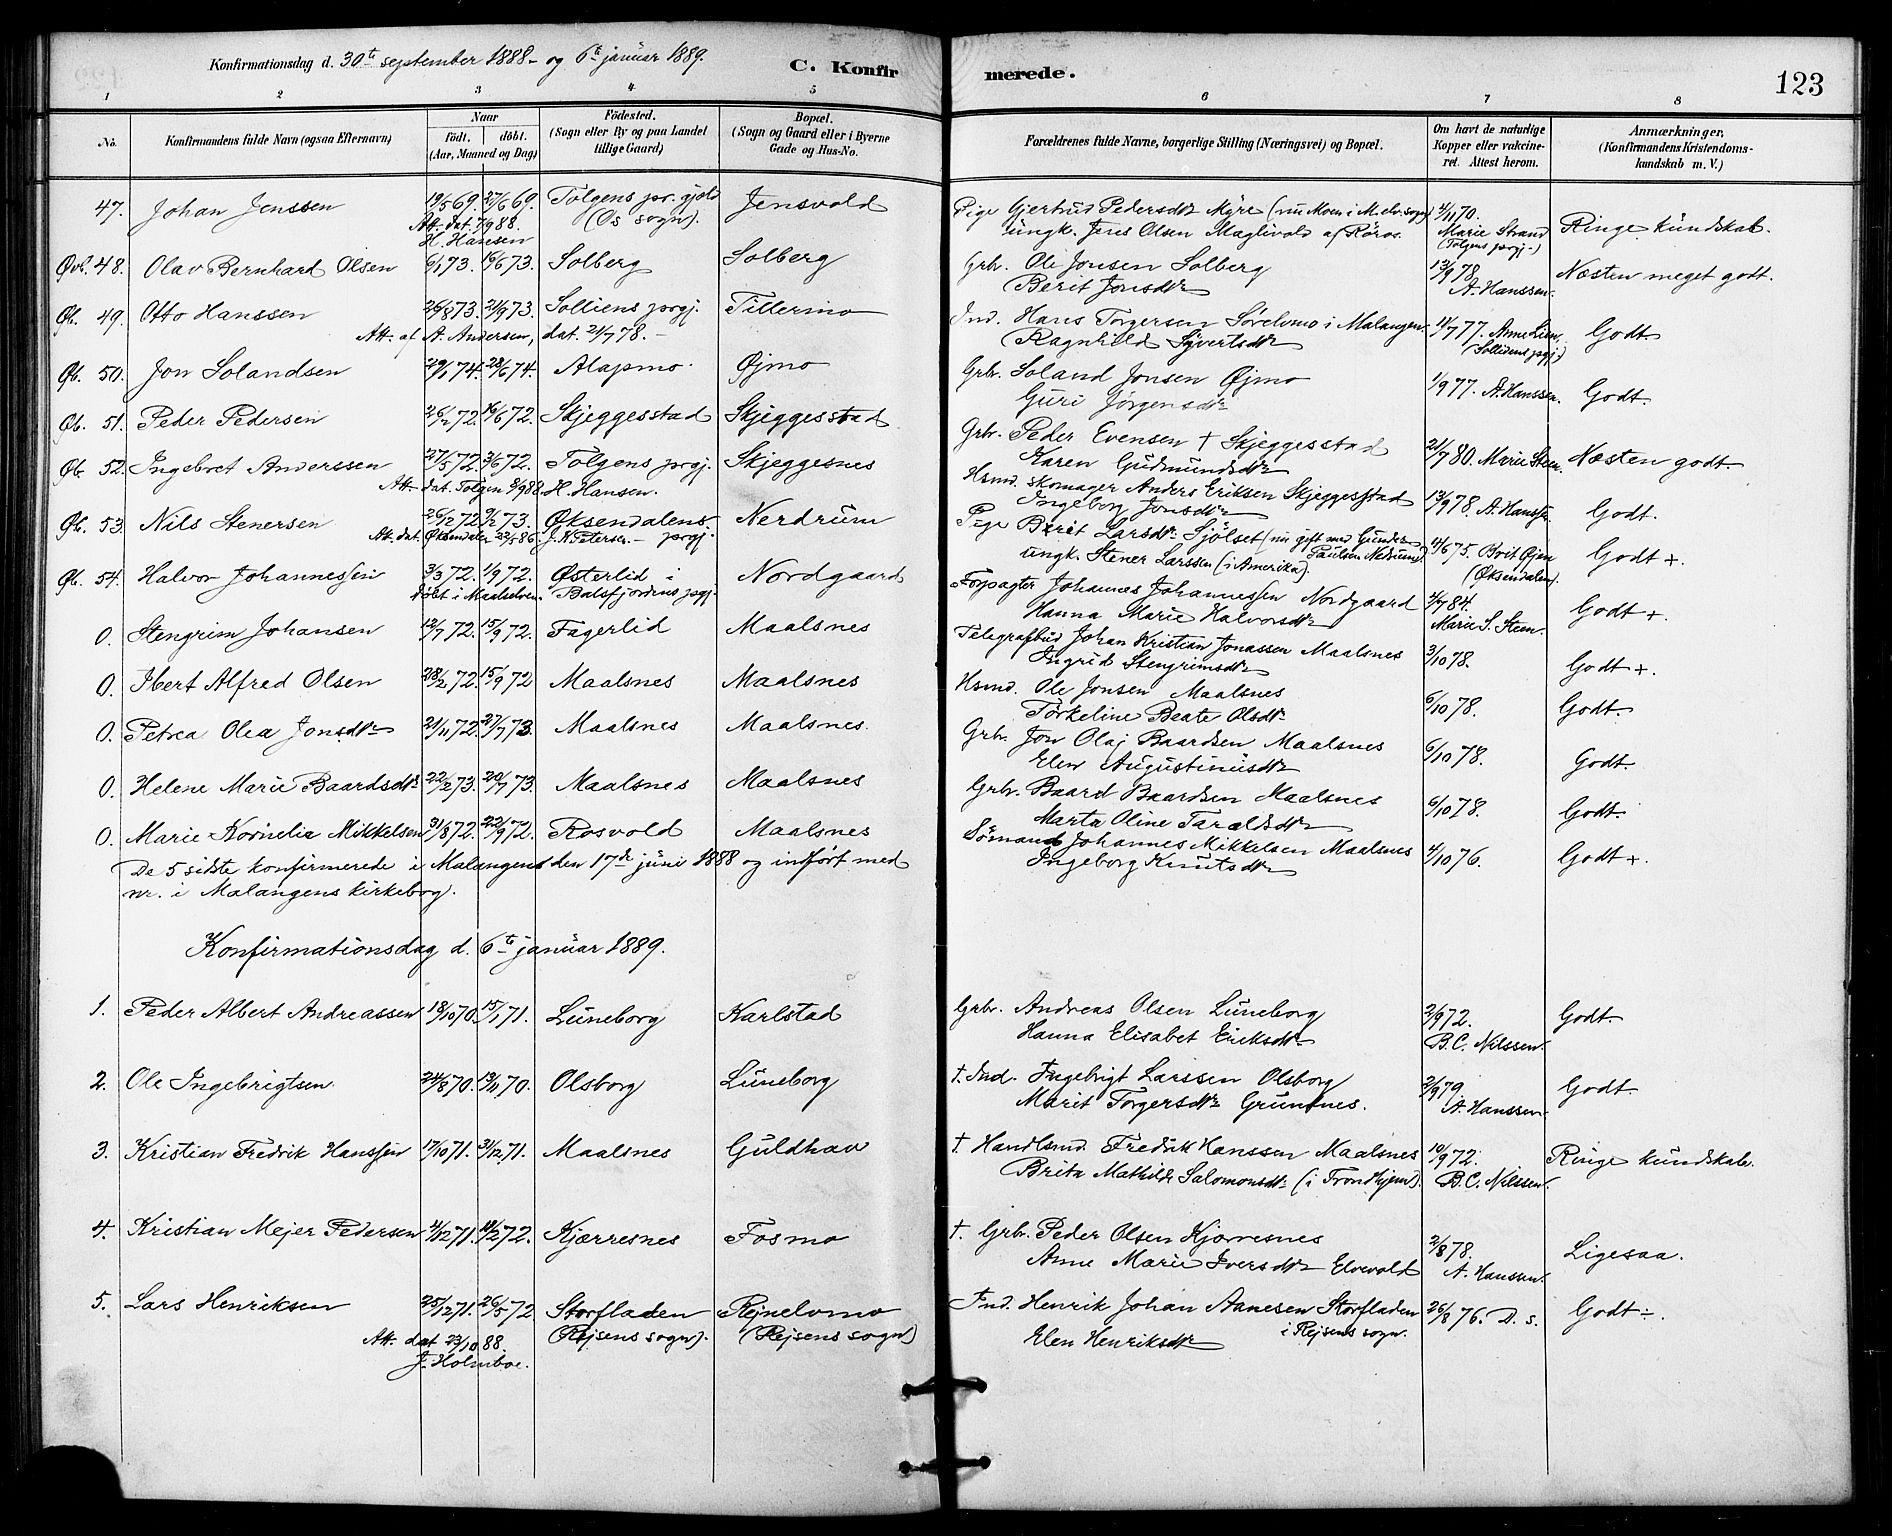 Konfirmationsdag d. 30te september 1888 - og 6te januar 1889.
C. Konfirmerede.
123
1 2 3 4 5 6 7 8
No.
Konfirmandens fulde Navn (ogsaa Efternavn)
Naar
födt. döbt.
(Aar, Maaned og Dag)
Födested.
(Sogn eller By og paa Landet tillige Gaard)
Bopæl.
(Sogn og Gaard eller i Byerne Gade og Hus-No.
Forældrenes fulde Navne, borgerlige Stilling (Næringsvei) og Bopæl.
Om havt de naturlige Kopper eller vakcineret. Attest herom.
Anmærkninger,
(Konfirmandens Kristendomskundskab m. V.)
47. Johan Jenssen 19/5 69. 27/6 69. Tolgens pr. gjeld (Os sogn). Jensvold
Att. dat. 7/9 88. H. Hansen
Pige Gjertrud Pedersdtr Myre (nu Moen i M. elv. sogn)
ungk. Jens Olsen Magtivold af Röros.
4/11 70. Marie Strand (Tolgens prgj.)
Ringe kundskab.
Øvb. 48. Olav Bernhard Olsen 6/1 73. 16/6 73. Solberg Solberg
Grbr. Ole Jonsen Solberg
Berit Jonsdtr
13/9 78. A. Hanssen.
Næsten meget godt.
Øb. 49. Otto Hanssen 26/8 73. 21/9 73. Solliens prgj. Tillermo
Att. af A. Andersen, dat. 21/7 78.
Ind. Hans Torgersen Sörelvmo i Malangen
Ragnhild Syvertsdtr
11/7 77. Anne Lien, (Sollidens prgj.)
Godt.
Øb. 50. Jon Solandsen 29/1 74. 28/6 74. Alapmo. Øjmo
Grbr. Soland Jonsen Øjmo
Guri Jörgensdtr
1/9 77. A. Hanssen.
Godt.
Øb. 51. Peder Pedersen 26/2 72. 16/6 72. Skjeggesstad Skjeggesstad
Grbr. Peder Evensen + Skjeggesstad
Karen Gudmundsdtr
21/7 80. Marie Steen.
Næsten godt.
Øb. 52. Ingebret Anderssen 27/5 72. 3/6 72. Tolgens prgj. Skjeggesnes
Att. dat. Tolgen 8/9 88. H. Hansen.
Hsmd. skomager Anders Eriksen Skjeggesstad
Ingeborg Jonsdtr
13/9 78. A. Hanssen
Godt.
Øb. 53. Nils Stenersen 26/12 72. 9/2 73. Øksendalens prgj. Nerdrum
Att. dat. Øksendalen 22/5 86. J. N. Petersen.
Pige Berit Larsdtr Sjölset (nu gift med Gunder Paulsen Nedrum).
ungk. Stener Larssen (i Amerika).
4/6 75. Brit Øjen (Øksendalen).
Godt +
Øb. 54. Halvor Johannessen 3/3 72. 1/9 72. Østerlid i Balsfjordens prgj. Nordgaard
döbt i Maalselven.
Forpagter Johannes Johannessen Nordgaard
Hanna Marie Halvorsdtr
4/7 84. Marie S. Steen.
Godt +.
0. Stengrim Johansen 12/7 72. 15/9 72. Fagerlid Maalsnes
Telegrafbud Johan Kristian Jonassen Maalsnes
Ingrid Stengrimsdtr
3/10 78.
Godt +.
0. Ibert Alfred Olsen 28/2 72. 15/9 72 Maalsnes Maalsnes
Hsmd. Ole Jonsen Maalsnes
Torkeline Beate Olsdtr
6/10 78.
Godt.
0. Petrea Olea Jonsdtr 21/11 72. 27/7 73. Maalsnes Maalsnes.
Grbr. Jon Olaj Baardsen Maalsnes
Elen Augustinusdtr
6/10 78.
Godt.
0. Helene Marie Baardsdtr 22/2 73. 20/7 73. Maalsnes Maalsnes
Grbr. Baard Baardsen Maalsnes
Marta Oline Taraldsdtr
6/10 78.
Godt.
0. Marie Kornelia Mikkelsen 31/8 72. 22/9 72. Rosvold Maalsnes
Sömand Johannes Mikkelsen Maalsnes
Ingeborg Knutsdtr
4/10 76.
Godt +.
De 5 sidste konfirmerede i Malangen den 17de juni 1888 og indfört med
nr. i Malangens kirkebog.
Konfirmationsdag d. 6te januar 1889.
1. Peder Albert Andreassen 18/10 70. 15/1 71. Luneborg Karlstad
Grbr. Andreas Olsen Luneborg
Hanna Elisabet Eriksdtr
2/9 72. B.C. Nilssen.
Godt.
2. Ole Ingebrigtsen 24/8 70. 13/11 70. Olsborg Luneborg
†. Ind. Ingebrigt Larssen Olsborg
Marit Torgersdtr Grundnes.
2/9 79. A. Hanssen.
Godt.
3. Kristian Fredrik Hanssen 17/10 71. 31/12 71. Maalsnes Guldhav
† Handlsmd. Fredrik Hanssen Maalsnes
Brita Mathilde Salomonsdtr (i Trondhjem).
10/9 72. B.C. Nilssen.
Ringe kundskab.
4. Kristian Mejer Pedersen 4/12 71. 10/2 72. Kjærresnes Fosmo
†. Grbr. Peder Olsen Kjærresnes
Anne Marie Iversdtr Elvevold
2/8 78. A. Hanssen.
Ligesaa.
5. Lars Henriksen 25/12 71. 26/5 72 Storfladen (Rejsens sogn). Rejnelvmo (Rejsens sogn)
Att. dat 23/10 88. J. Holmboe.
Ind. Henrik Johan Aanesen Storfladen i Rejsens sogn.
Elen Henriksdtr
26/8 76. D. s.
Godt ÷.